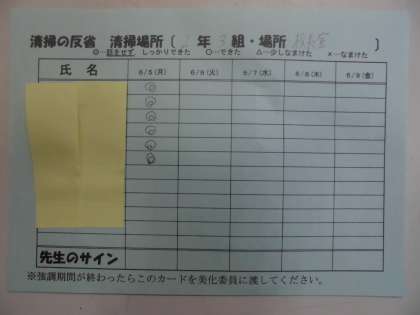 清掃の反省 清掃場所〔 2 年 3 組・場所 校長室 〕
◎…話をせず、しっかりできた ○…できた △…少しなまけた ×…なまけた
氏 名 6/5(月) 6/6(火) 6/7(水) 6/8(木) 6/9(金)
◎
◎
◎
◎
◎
◎
先生のサイン
※強調期間が終わったらこのカードを美化委員に渡してください。